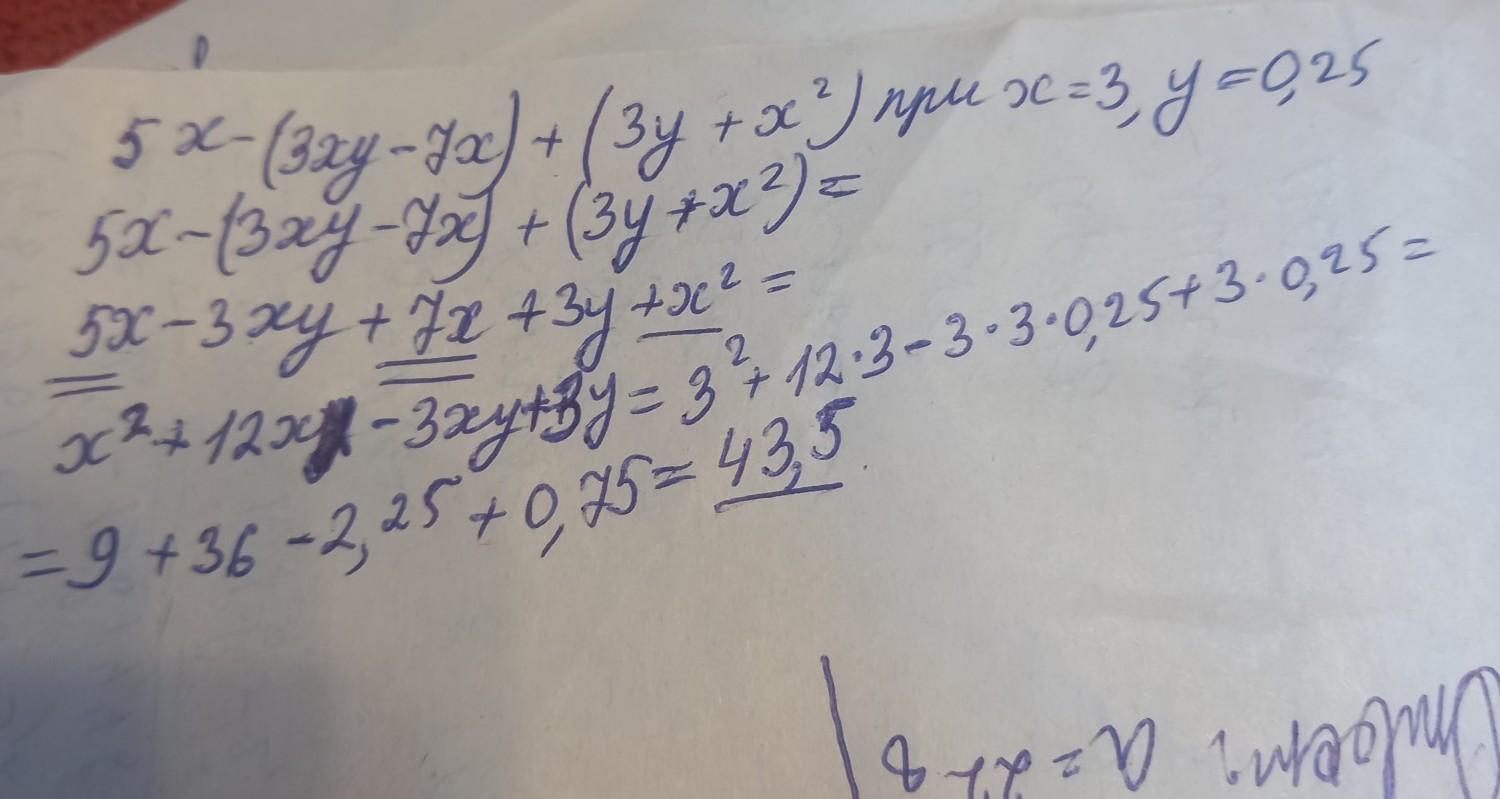 5x-(3xy-7x)+(3y+x²) при x=3, y=0,25
5x-(3xy-7x)+(3y+x²)=
5x-3xy+7x+3y+x²=
x²+12x-3xy+3y=3²+12·3-3·3·0,25+3·0,25=
=9+36-2,25+0,75=43,5
Ответ: a=